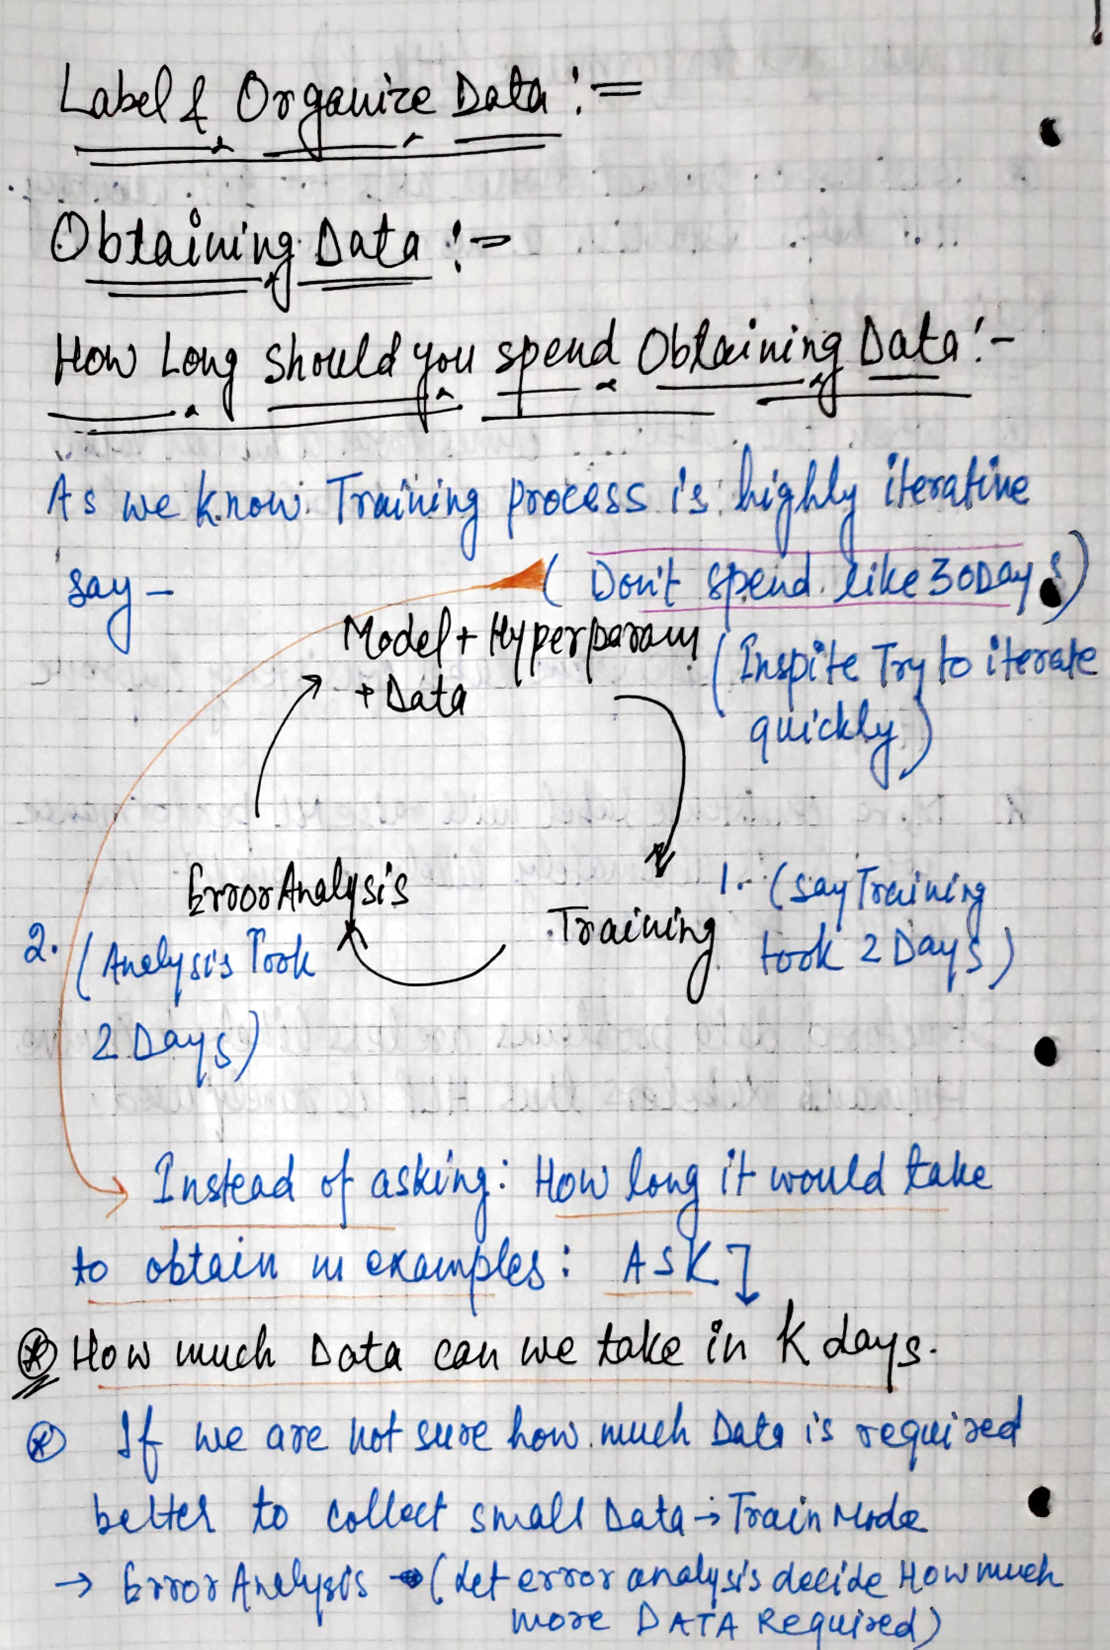 Label & Organize Data :=
Obtaining Data :-
How Long should you spend Obtaining Data :-
As we know Training process is highly iterative
say -
( Don't spend like 30 Days )
Model + Hyperparam
+ Data
( Inspite Try to iterate
quickly )
Error Analysis
Training
1. ( say Training
took 2 Days )
2. ( Analysis Took
2 Days )
Instead of asking: How long it would take
to obtain m examples: ASK
How much Data can we take in K days.
If we are not sure how much Data is required
better to collect small Data → Train Mode
→ Error Analysis → ( Let error analysis decide How much
more DATA Required )